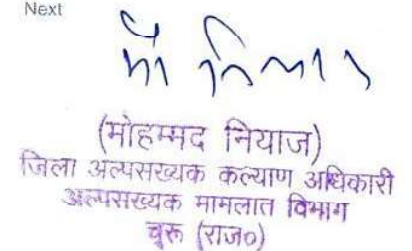 Next
मो नियाज
(मोहम्मद नियाज)
जिला अल्पसंख्यक कल्याण अधिकारी
अल्पसंख्यक मामलात विभाग
चूरू (राज०)